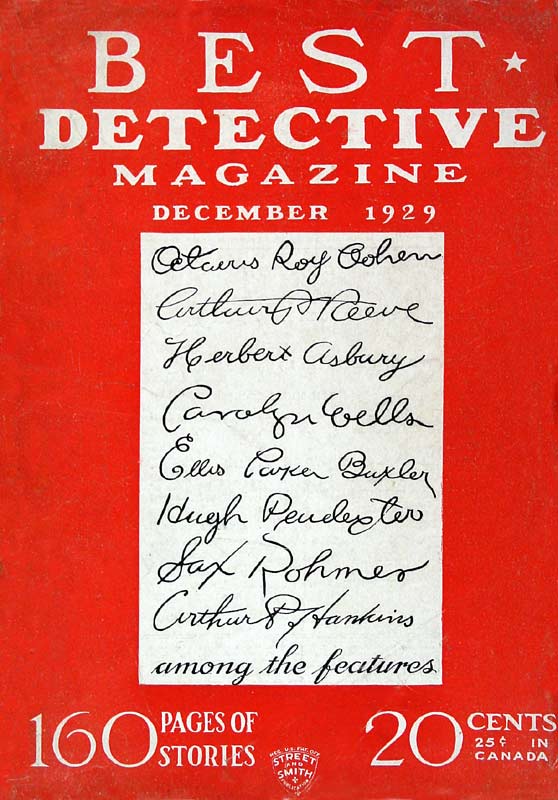 BEST
DETECTIVE
MAGAZINE
DECEMBER 1929
Octavus Roy Cohen
Arthur B Reeve
Herbert Asbury
Carolyn Wells
Ellis Parker Butler
Hugh Pendexter
Sax Rohmer
Arthur P. Hankins
among the features
160 PAGES OF STORIES
20 CENTS
25¢ IN CANADA
REG. U.S. PAT. OFF.
STREET AND SMITH
PUBLICATION